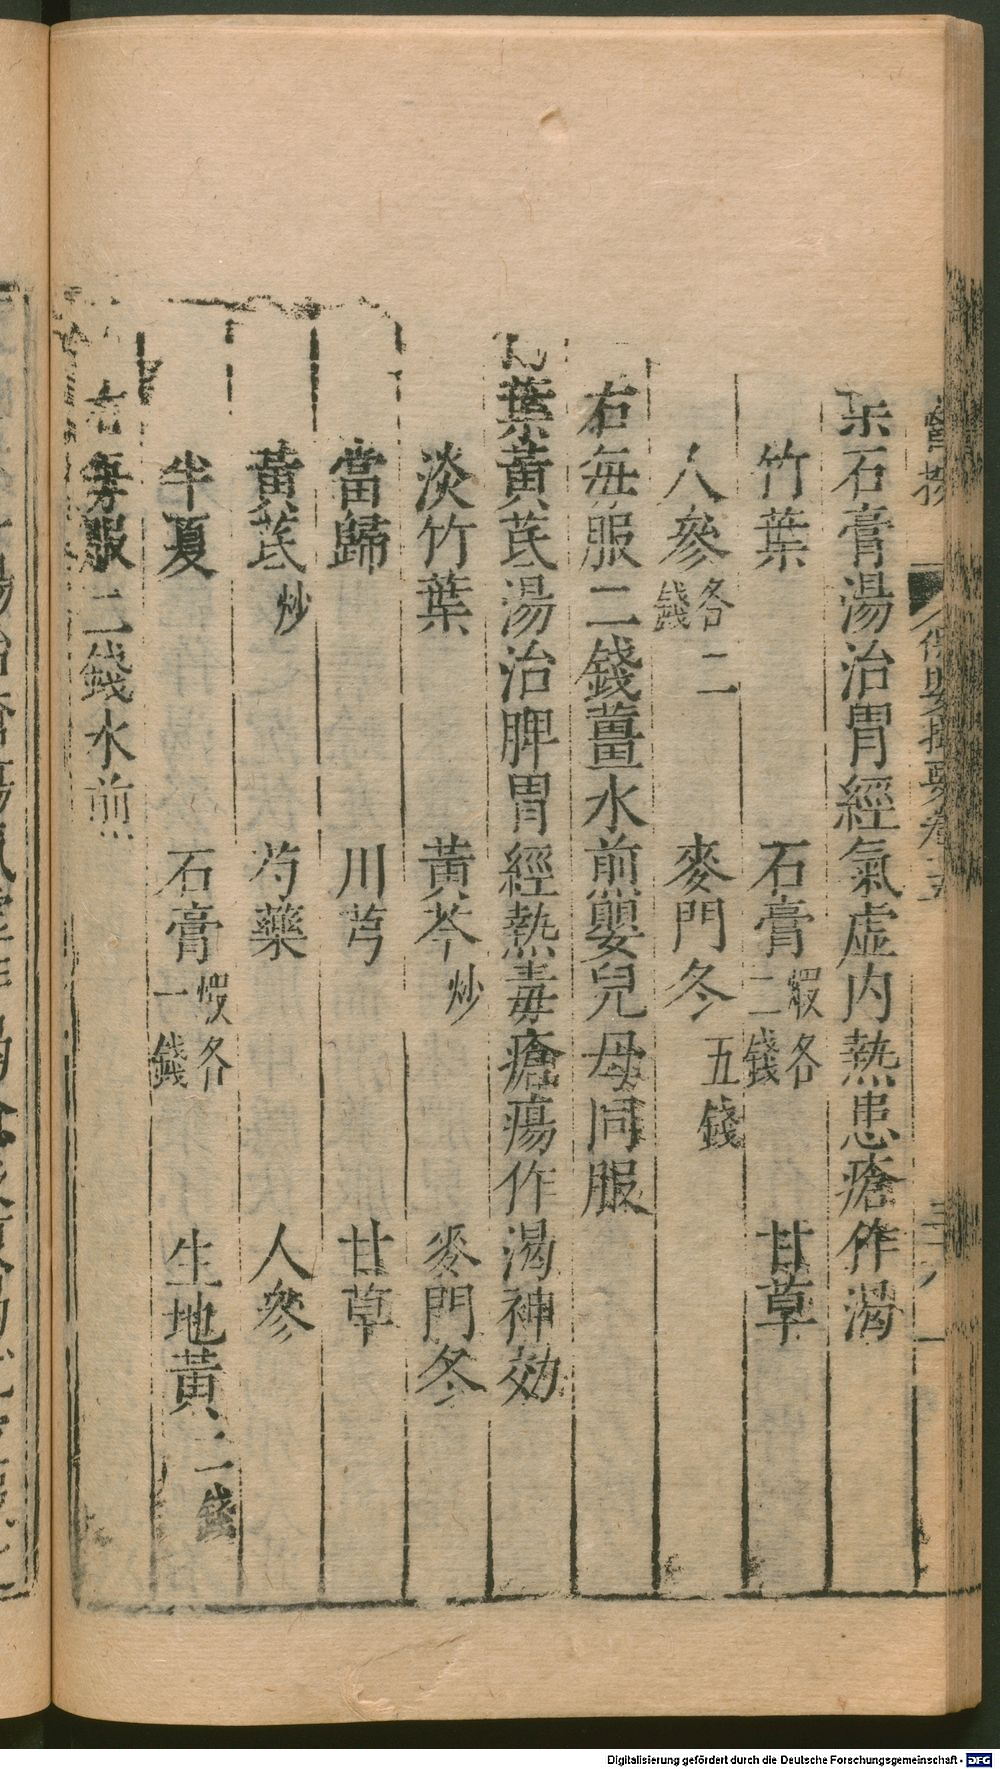 石膏湯治胃經氣虛内熱患瘡作渴
竹葉 石膏煆各二錢 甘草
人參各二錢 麥門冬五錢
右每服二錢薑水煎嬰兒母同服
葉黃芪湯治脾胃經熱毒瘡瘍作渴神効
淡竹葉 黃芩炒 麥門冬
當歸 川芎 甘草
黃芪炒 芍藥 人參
半夏 石膏煆各一錢 生地黃二錢
右每服二錢水煎
Digitalisierung gefördert durch die Deutsche Forschungsgemeinschaft - DFG